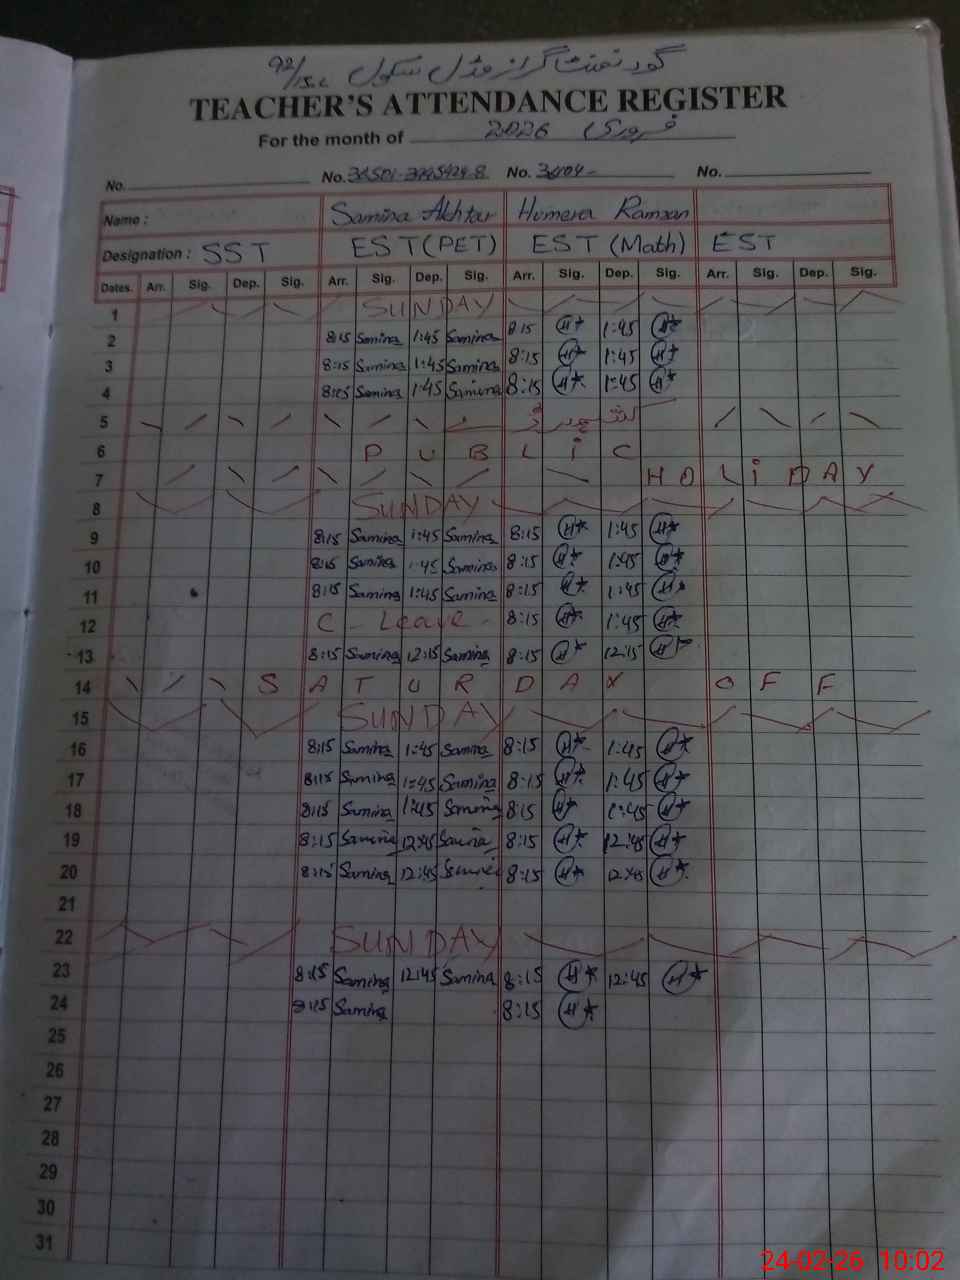 گورنمنٹ گرلز مڈل سکول 92/15.L
TEACHER'S ATTENDANCE REGISTER
For the month of فروری 2026
No. No. No. No.
Name : Samina Akhtar Humera Ramzan
Designation : SST EST (PET) EST (Math) EST
Dates. Arr. Sig. Dep. Sig. Arr. Sig. Dep. Sig. Arr. Sig. Dep. Sig. Arr. Sig. Dep. Sig.
1 SUNDAY
2 8:15 Samina 1:45 Samina 8:15 H 1:45 H
3 8:15 Samina 1:45 Samina 8:15 H 1:45 H
4 8:15 Samina 1:45 Samina 8:15 H 1:45 H
5
6 PUBLiC
7 HOLiDAY
8 SUNDAY
9 8:15 Samina 1:45 Samina 8:15 H 1:45 H
10 8:15 Samina 1:45 Samina 8:15 H 1:45 H
11 8:15 Samina 1:45 Samina 8:15 H 1:45 H
12 C - Leave - 8:15 H 1:45 H
13 8:15 Samina 12:15 Samina 8:15 H 12:15 H
14 SATURDAY OFF
15 SUNDAY
16 8:15 Samina 1:45 Samina 8:15 H 1:45 H
17 8:15 Samina 1:45 Samina 8:15 H 1:45 H
18 8:15 Samina 1:45 Samina 8:15 H 1:45 H
19 8:15 Samina 12:45 Samina 8:15 H 12:45 H
20 8:15 Samina 12:45 Samina 8:15 H 12:45 H
21
22 SUNDAY
23 8:15 Samina 12:45 Samina 8:15 H 12:45 H
24 8:15 Samina 8:15 H
25
26
27
28
29
30
31
24-02-26 10:02